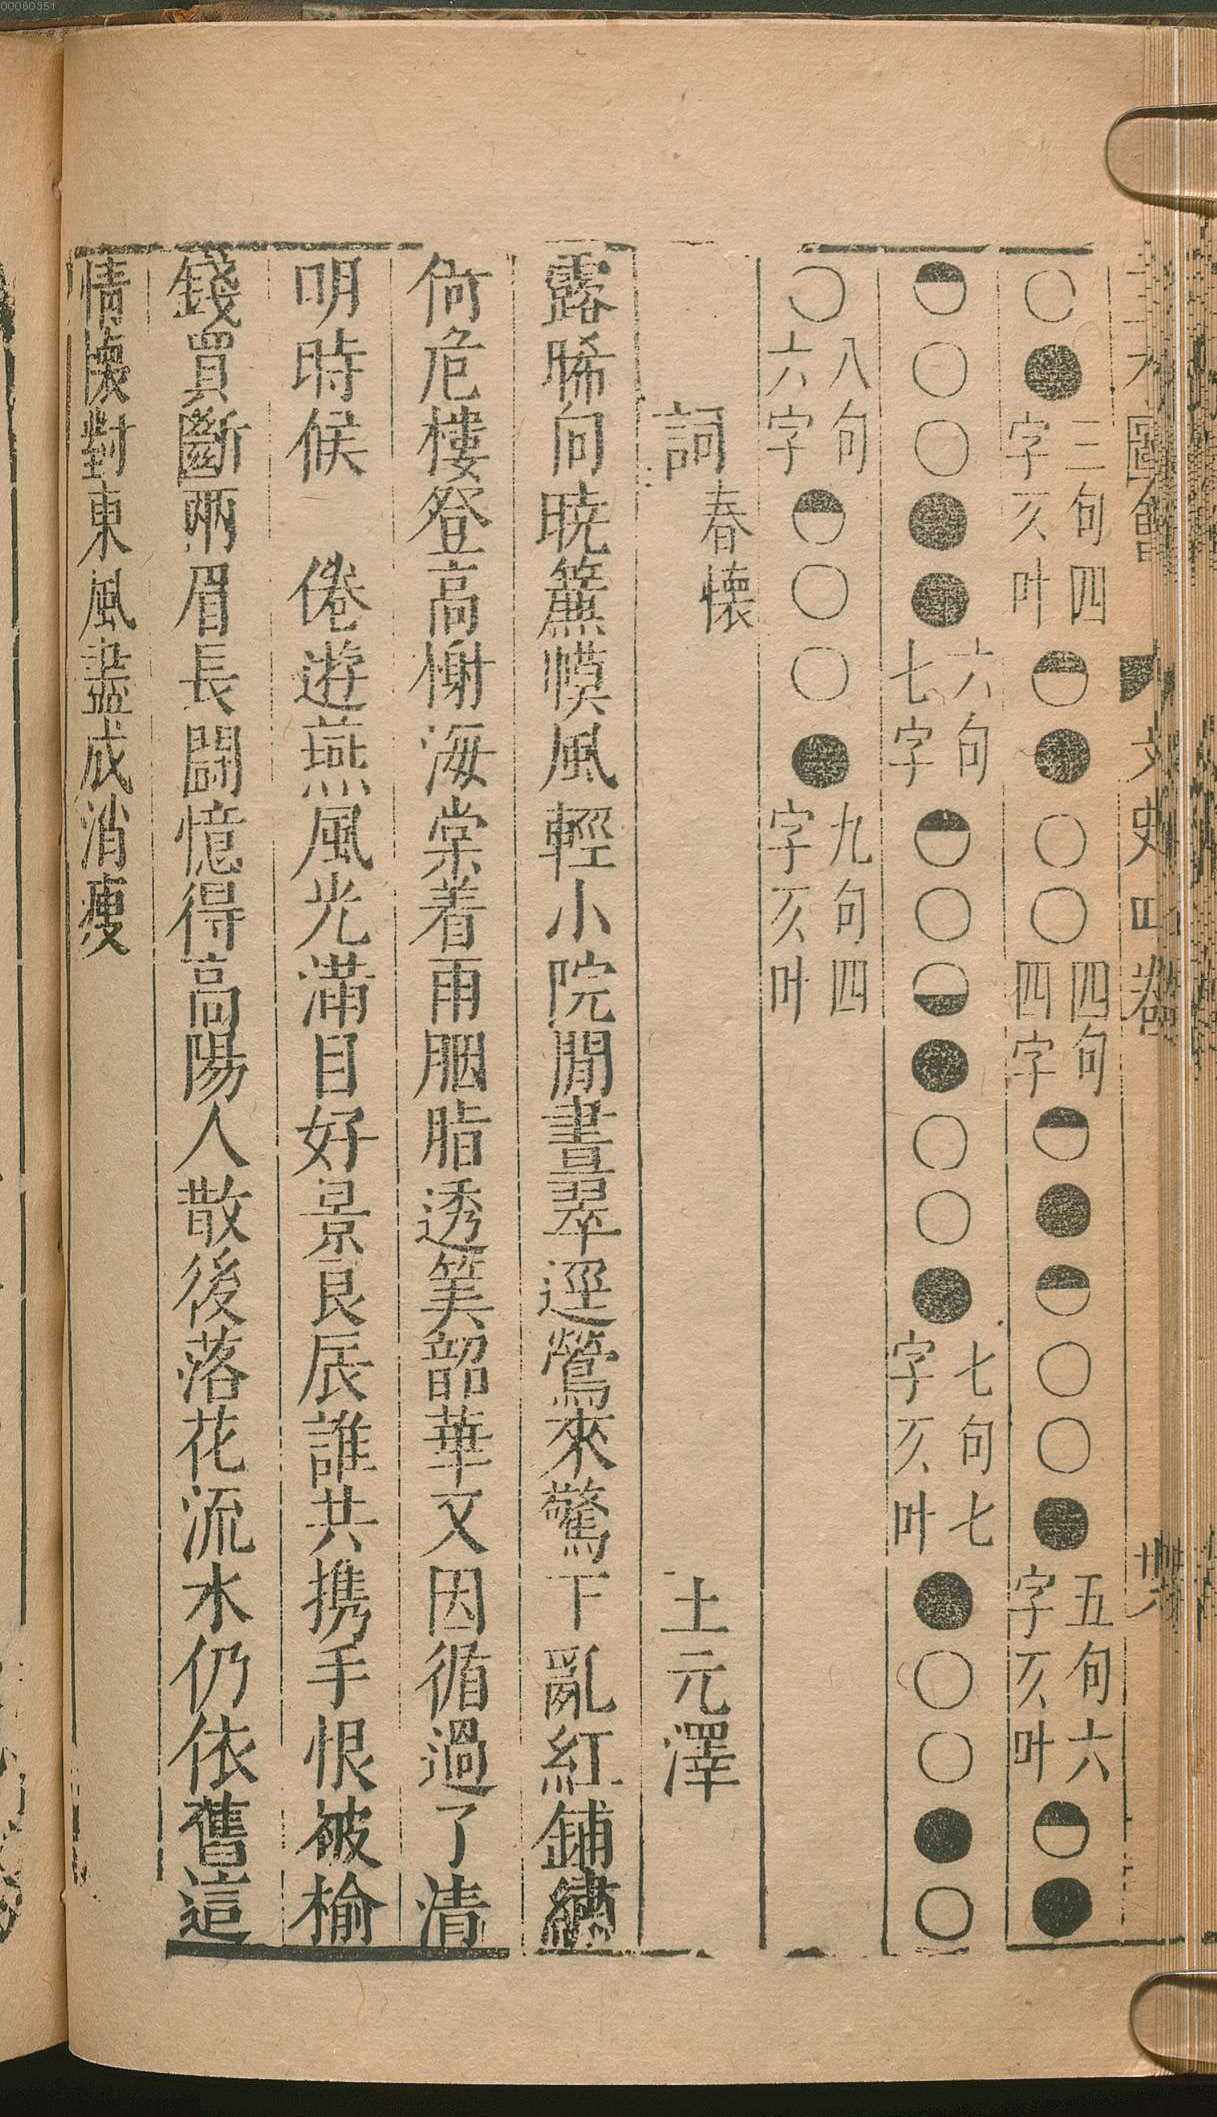 00080351
三才圖會 文史四卷 共
○●三句四字仄叶◓●○○四句四字◓●◓○○●五句六字仄叶◓●
◓○○●●六句七字◓○◒●○○●七句七字仄叶●○○●○
○八句六字◓○○●九句四字仄叶
詞春懷 土元澤
露晞向曉簾幙風輕小院閒晝翠逕鶯來驚下亂紅鋪繡
倚危樓登高榭海棠着雨胭脂透筭韶華又因循過了清
明時候 倦遊燕風光滿目好景良辰誰共携手恨被榆
錢買斷兩眉長鬬憶得高陽人散後落花流水仍依舊這
情懷對東風盡成消瘦